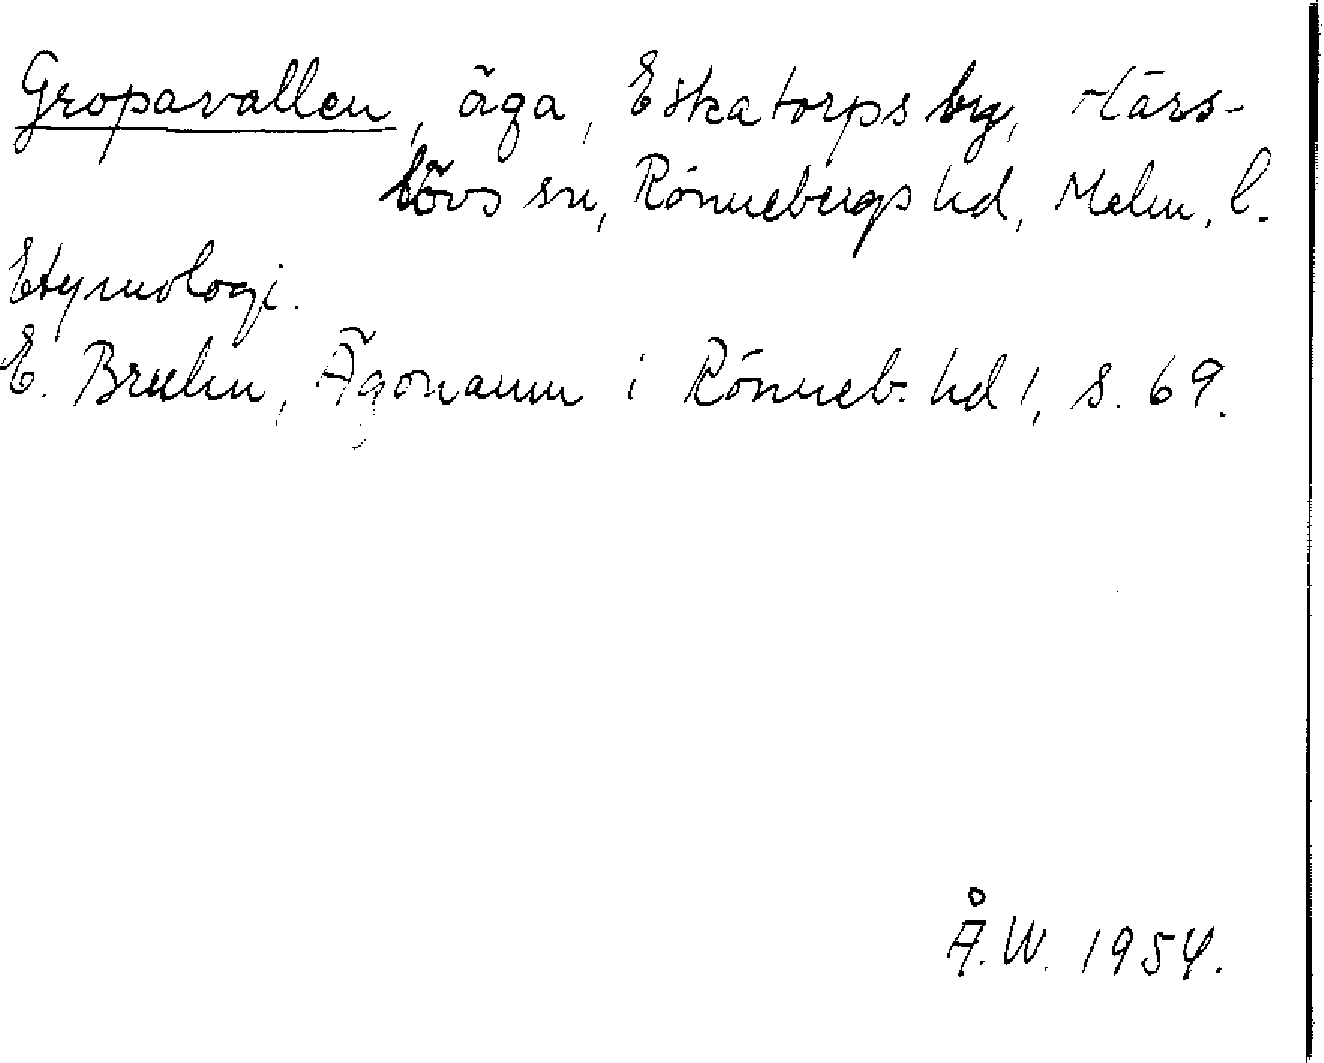 Gropavallen, äga, Eskatorps by, Härs-
lövs sn, Rönnebergs hd, Malm. l.
Etymologi.
E. Bruhn, Ägonamn i Rönneb. hd 1, s. 69.
Å.W. 1954.